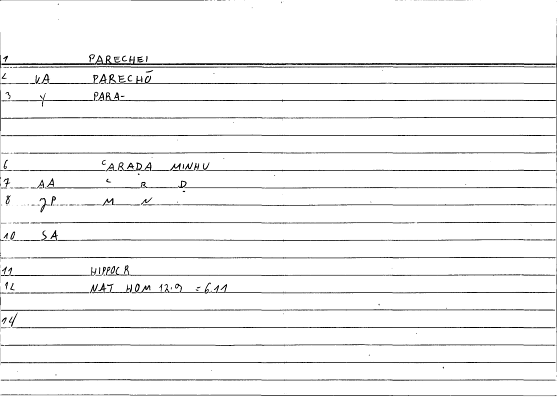 1 PARECHEI
2 VA PARECHŌ
3 Y PARA-
6 ʿARADA MINHU
7 AA ʿ R Ḍ
8 JP M N
10 SA
11 HIPPOCR
12 NAT HOM 12.9 = 6.11
14/